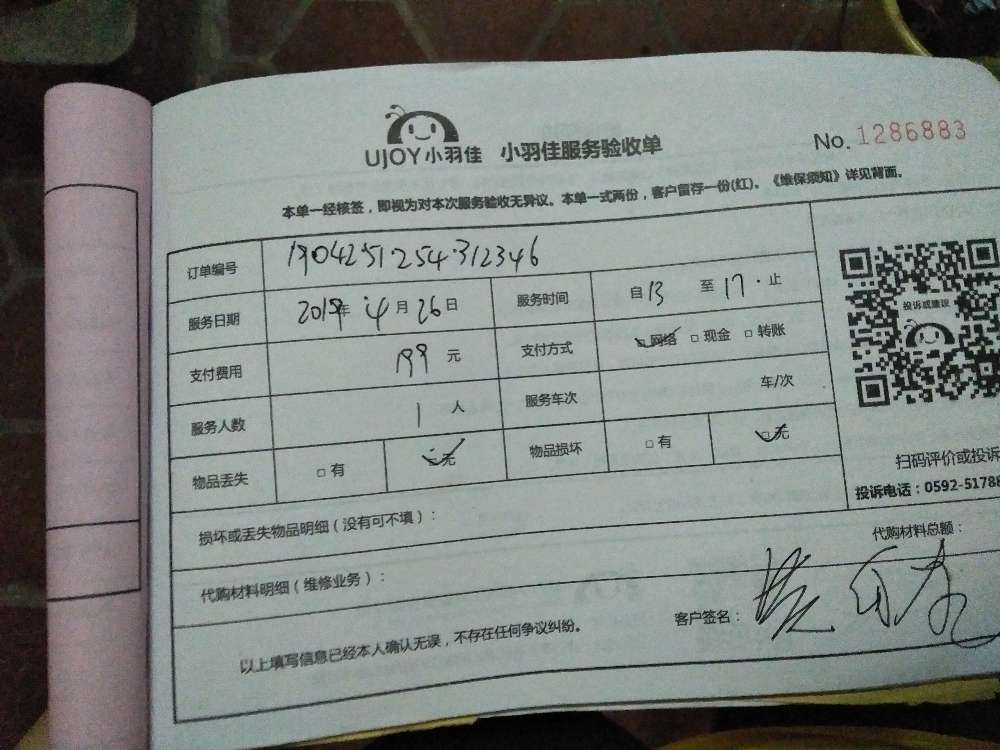 UJOY小羽佳 小羽佳服务验收单 No. 1286883
本单一经核签，即视为对本次服务验收无异议。本单一式两份，客户留存一份(红)。《维保须知》详见背面。
订单编号 190425125431234​6
服务日期 2019年 4月 26日 服务时间 自13 至17·止
支付费用 199 元 支付方式 □网络 □现金 □转账
服务人数 1 人 服务车次 车/次
物品丢失 □有 □无 物品损坏 □有 □无
投诉或建议
扫码评价或投诉
投诉电话：0592-51788
损坏或丢失物品明细（没有可不填）：
代购材料明细（维修业务）： 代购材料总额：
以上填写信息已经本人确认无误，不存在任何争议纠纷。 客户签名：